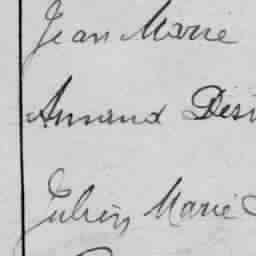 Jean Marie
Armand Dési
Julien Marie